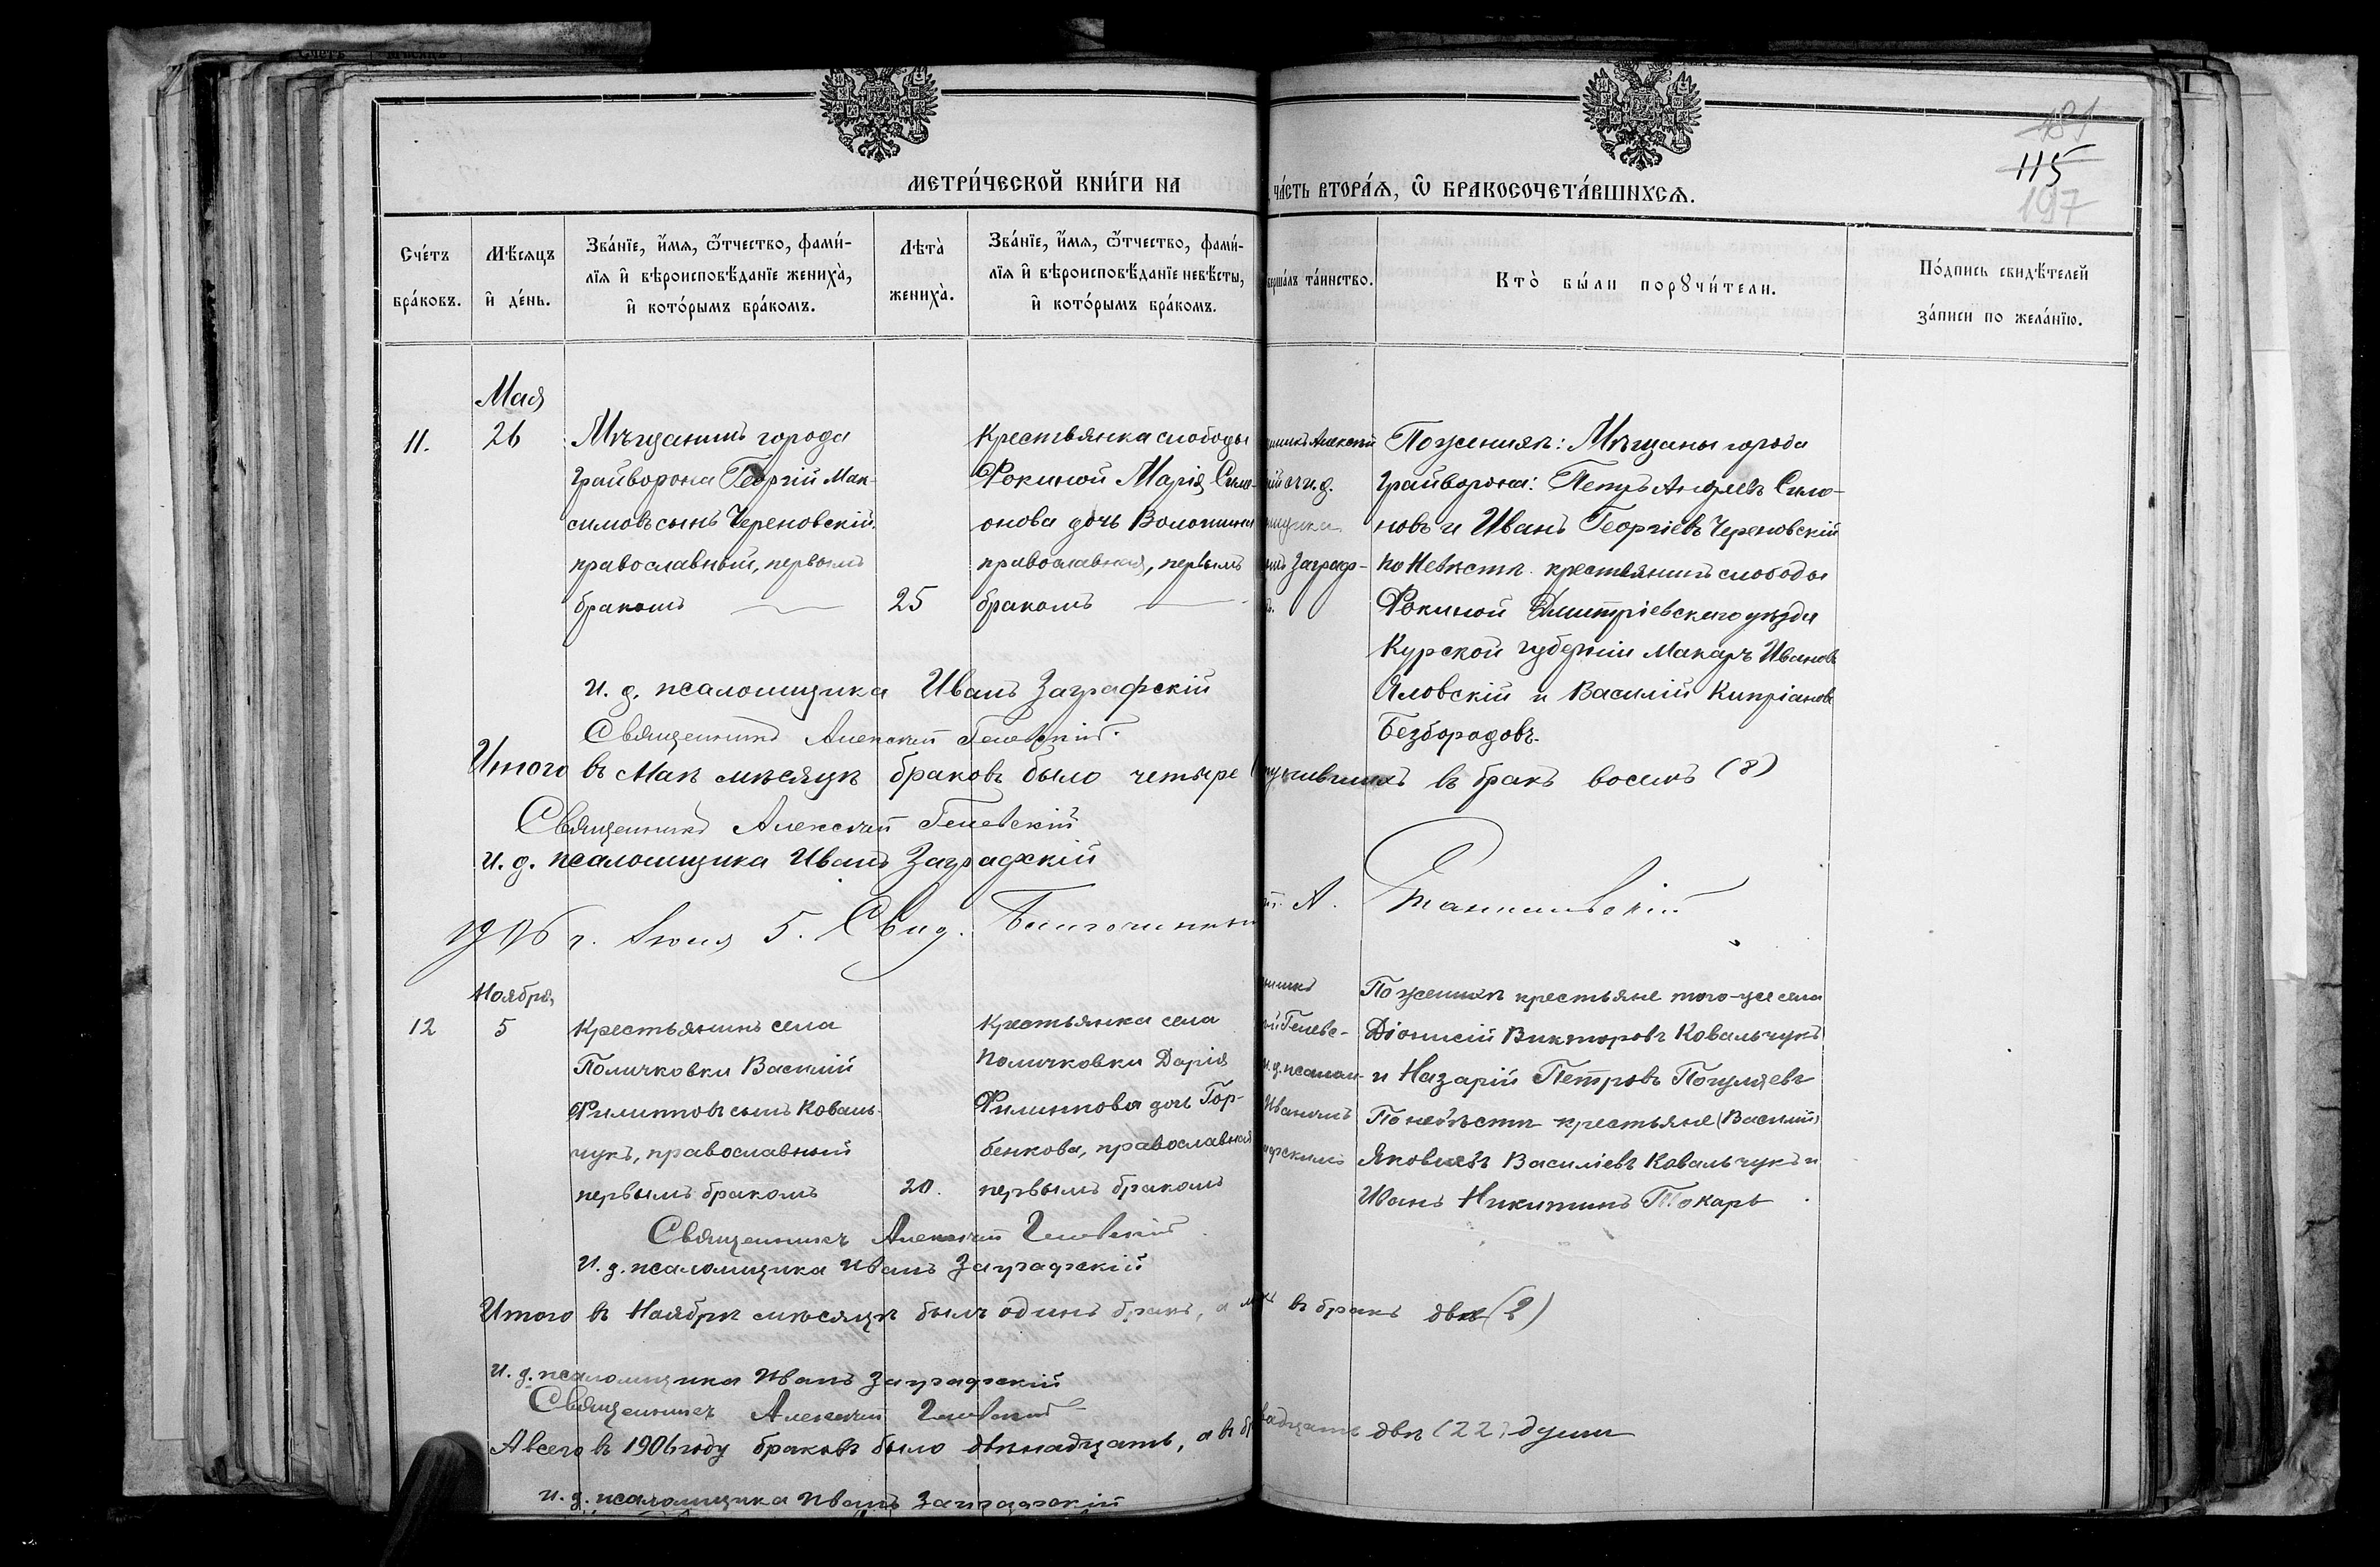 181
115
197
МЕТРИ́ЧЕСКОЙ КНИ́ГИ НА
ЧА́СТЬ ВТОРА́Ѧ, Ѽ БРАКОСОЧЕТА́ВШИХСѦ.
Сче́тъ бра́ковъ.
Мѣ́сяцъ и҆ де́нь.
Зва́нїе, и҆́мя, ѻ҆́тчество, фами́-
лїя и҆ вѣроисповѣ́данїе жениха̀,
и҆ кото́рымъ бра́комъ.
Лѣта̀ жениха̀.
Зва́нїе, и҆́мя, ѻ҆́тчество, фами́-
лїя и҆ вѣроисповѣ́данїе невѣ́сты,
и҆ кото́рымъ бра́комъ.
верша́лъ та́инство.
Кто̀ бы́ли порꙋчи́тели.
По́дпись свидѣ́телей
за́писи по жела́нїю.
Мая
11.
26
Мѣщанинъ города
Грайворона Георгій Мак-
симовъ сынъ Череновскій.
православный, первымъ
бракомъ
25
Крестьянка слободы
Фокиной Марія Сими-
онова дочь Волошина
православная, первымъ
бракомъ
Алексій
и.д.
Заграф-
По женихѣ: Мѣщаны города
Грайворона: Петръ Андреевъ Симо-
новъ и Иванъ Георгіевъ Череновскій
по Невѣстѣ крестьянинъ слободы
Фокиной Дмитріевскаго уѣзда
Курской губерніи Макаръ Ивановъ
Яловскій и Василій Кипріановъ
Безбородовъ.
и. д. псаломщика Иванъ Заграфскій
Священникъ Алексій Гелевскій.
Итого въ Маѣ мѣсяцѣ браковъ было четыре
въ бракъ восемь (8)
Священникъ Алексій Гелевскій
и. д. псаломщика Иванъ Заграфскій
1906 г. Іюня 5. Свид. Благочинный
А.
Ноября
12
5
Крестьянинъ села
Поличковки Василій
Филипповъ сынъ Коваль-
чукъ, православный
первымъ бракомъ
20.
Крестьянка села
Поличковки Дарія
Филиппова дочь Гор-
бенкова, православная
первымъ бракомъ
Гелевс-
и.д. псалом-
Иваномъ
По женихѣ крестьяне того-же села
Діонисій Викторовъ Ковальчукъ
и Назарій Петровъ Погуляевъ
По невѣстѣ крестьяне (Василій)
Яковлевъ Василіевъ Ковальчукъ и
Иванъ Никитинъ Токарь
Священникъ Алексій Гелевскій
И. д. псаломщика Иванъ Заграфскій
Итого въ Ноябрѣ мѣсяцѣ былъ одинъ бракъ, а
въ бракъ двѣ (2)
и. д. псаломщика Иванъ Заграфскій
Священникъ Алексій Гелевскій
А всего въ 1906 году браковъ было двѣнадцать, а въ
двѣ (22) души
и. д. псаломщика Иванъ Заграфскій